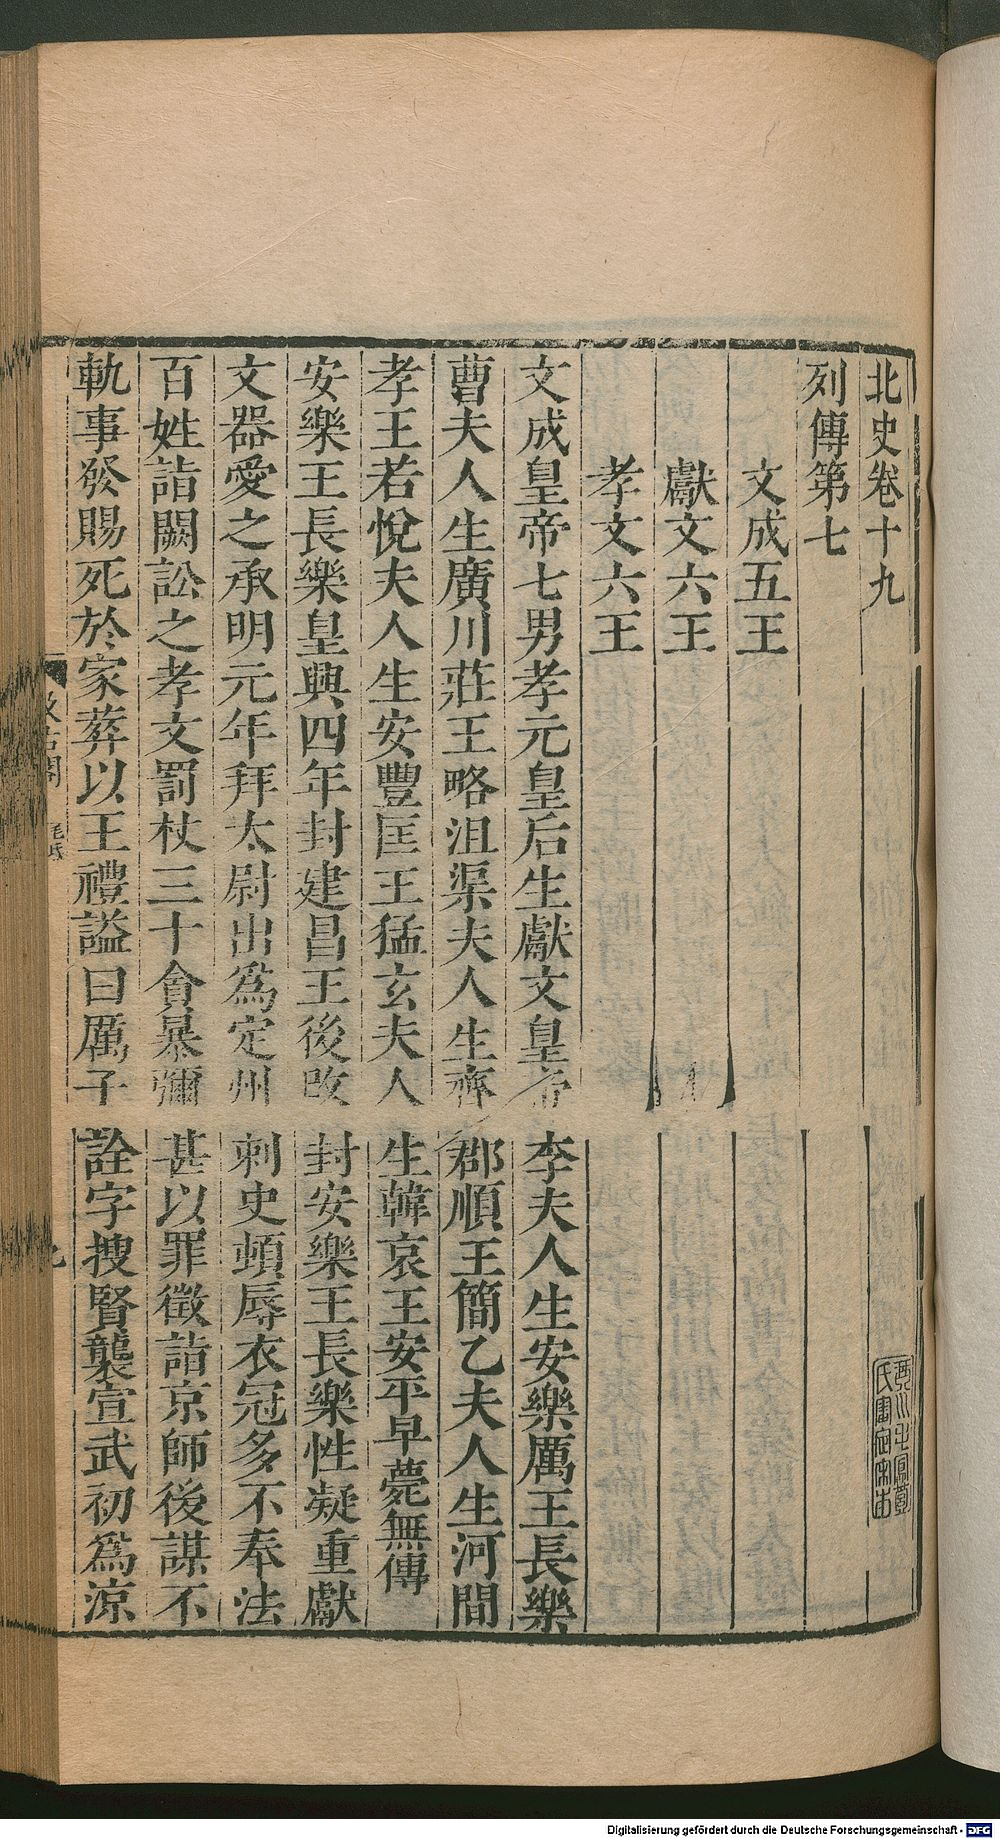 北史卷十九
列傳第七
文成五王
獻文六王
孝文六王
文成皇帝七男孝元皇后生獻文皇帝李夫人生安樂厲王長樂
曹夫人生廣川莊王略沮渠夫人生齊郡順王簡乙夫人生河間
孝王若悅夫人生安豐匡王猛玄夫人生韓哀王安平早薨無傳
安樂王長樂皇興四年封建昌王後改封安樂王長樂性凝重獻
文器愛之承明元年拜太尉出爲定州刺史頓辱衣冠多不奉法
百姓詣闕訟之孝文罰杖三十貪暴彌甚以罪徵詣京師後謀不
軌事發賜死於家葬以王禮謚曰厲子詮字搜賢襲宣武初爲涼
Digitalisierung gefördert durch die Deutsche Forschungsgemeinschaft - DFG